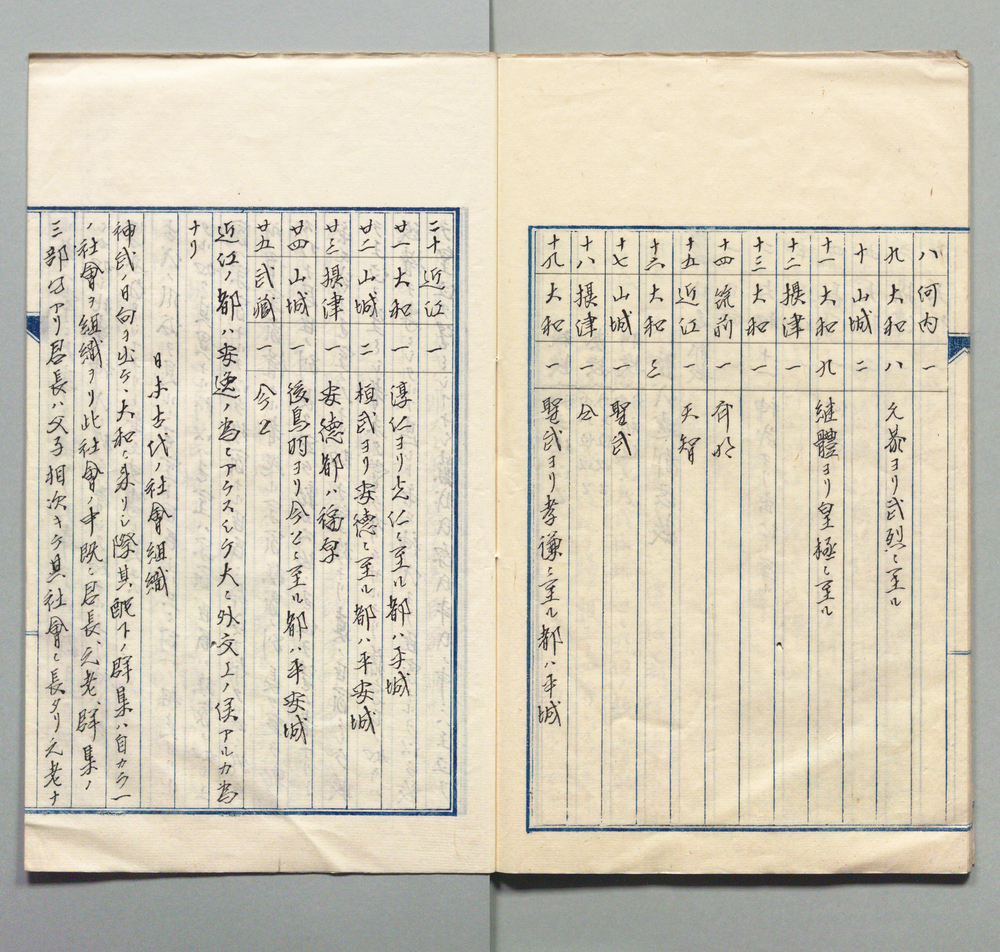 八 河内 一
九 大和 八 元恭ヨリ武烈ニ至ル
十 山城 二
十一 大和 九 継體ヨリ皇極ニ至ル
十二 摂津 一
十三 大和 一
十四 筑前 一 斉明
十五 近江 一 天智
十六 大和 三
十七 山城 一 聖武
十八 摂津 一 仝
十九 大和 一 聖武ヨリ孝謙ニ至ル都ハ平城
二十 近江 一
廿一 大和 一 淳仁ヨリ光仁ニ至ル都ハ平城
廿二 山城 二 桓武ヨリ安徳ニ至ル都ハ平安城
廿三 摂津 一 安徳都ハ福原
廿四 山城 一 後鳥羽ヨリ今上ニ至ル都ハ平安城
廿五 武藏 一 今上
近江ノ都ハ安逸ノ為ニアラスシテ大ニ外交上ノ侯アルカ為
ナリ
日本古代ノ社會組織
神武ノ日向ヲ出テ大和ニ來リシ際其麾下ノ群集ハ自カラ一
ノ社會ヲ組織ヲリ此社會ノ中既ニ君長、元老、群集ノ
三部分アリ君長ハ父子相次キテ其社會ニ長タリ元老ナ